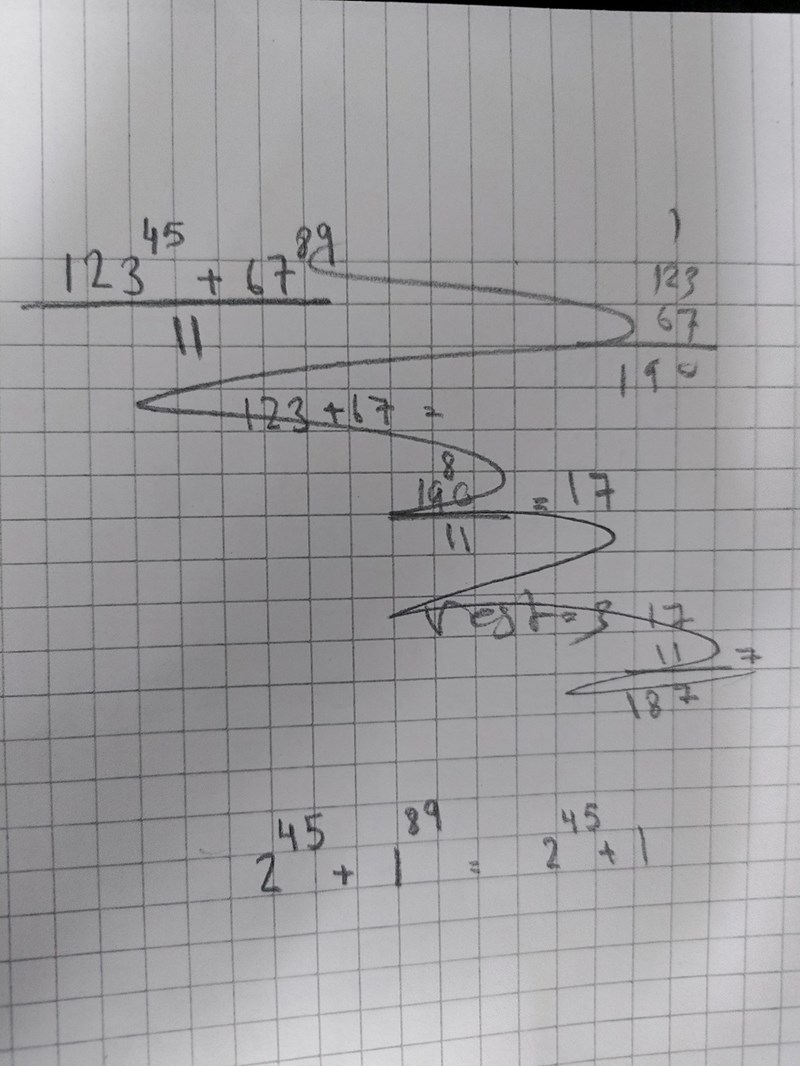 123^45 + 67^89
11
1
123
67
190
123 + 67 =
8
190
11
= 17
rest = 3
17
11
7
187
2^45 + 1^89 = 2^45 + 1